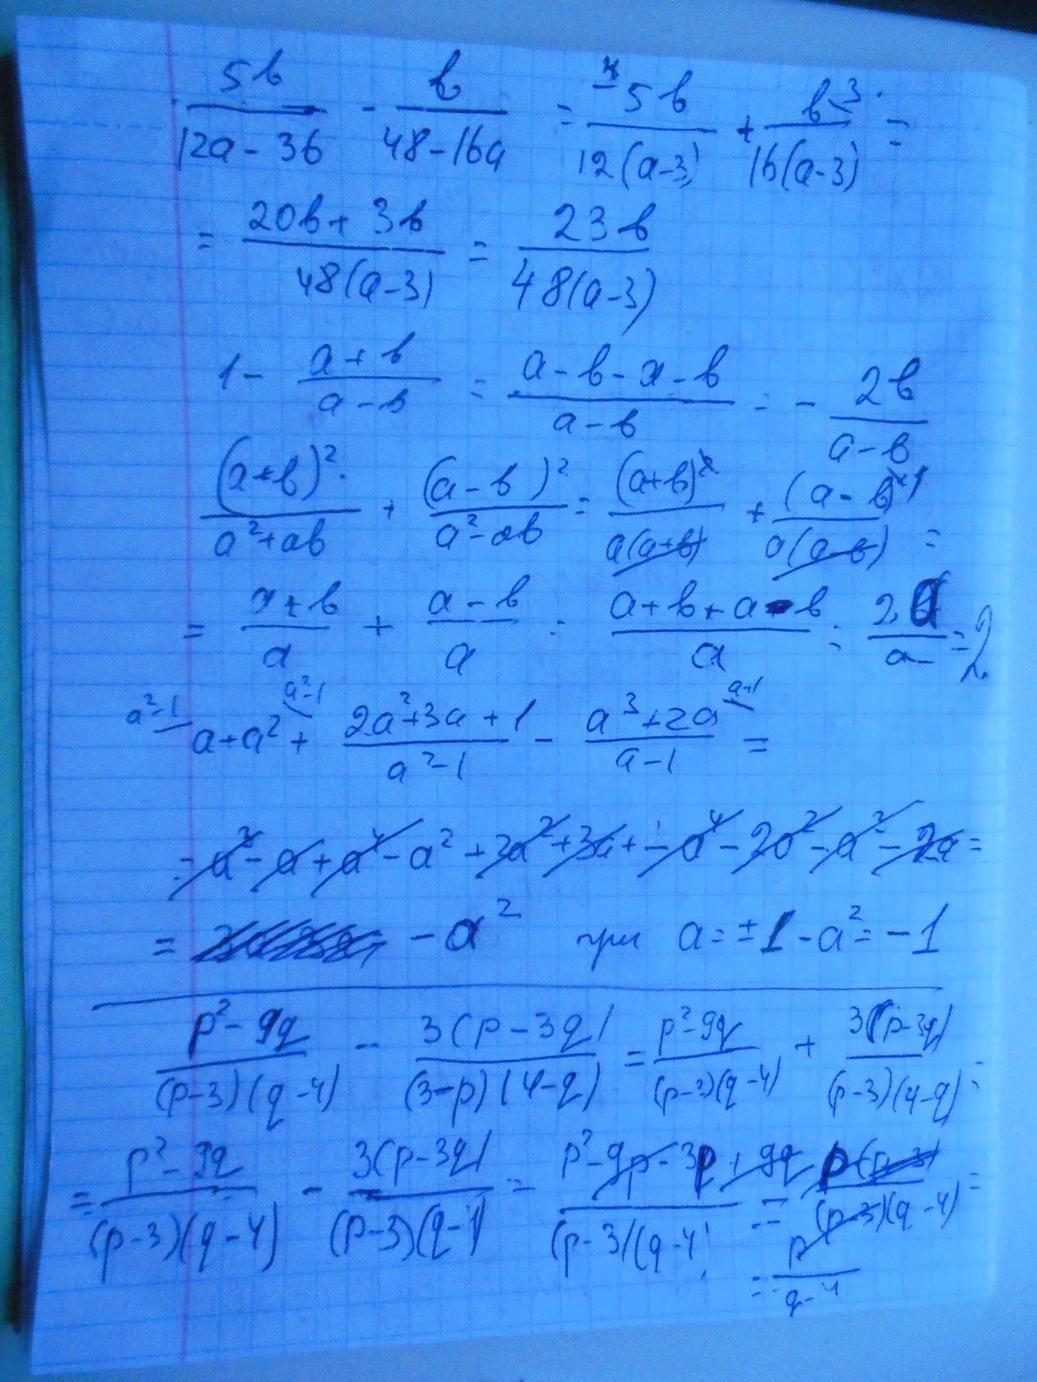 5b/(12a - 36) - b/(48 - 16a) = 5b/(12(a-3)) + b·3/(16(a-3)) =
= (20b + 3b)/(48(a-3)) = 23b/(48(a-3))
1 - (a+b)/(a-b) = (a-b-a-b)/(a-b) = - 2b/(a-b)
(a+b)²/(a²+ab) + (a-b)²/(a²-ab) = (a+b)²/(a(a+b)) + (a-b)²/(a(a-b)) =
= (a+b)/a + (a-b)/a = (a+b+a-b)/a = 2a/a = 2
a²-1 a+a² a²-1 + (2a²+3a+1)/(a²-1) - (a³+2a)/(a-1) a+1 =
= a³ - a + a⁴ - a² + 2a² + 3a + 1 - a⁴ - 2a² - a³ - 2a =
= - a² при a = ±1 - a² = -1
(p²-9q)/((p-3)(q-4)) - 3(p-3q)/((3-p)(4-q)) = (p²-9q)/((p-3)(q-4)) + 3(p-3q)/((p-3)(4-q)) =
= (p²-9q)/((p-3)(q-4)) - 3(p-3q)/((p-3)(q-4)) = (p²-9p-3p+9q)/((p-3)(q-4)) = p(p-3)/((p-3)(q-4)) =
= p/(q-4)